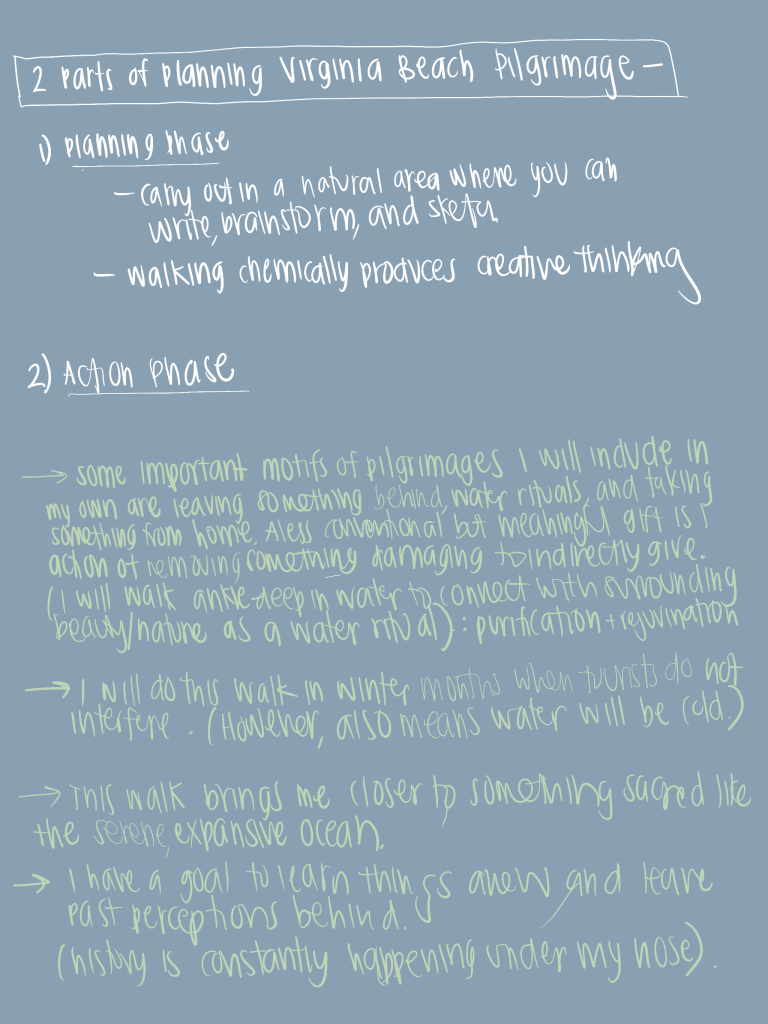 2 Parts of Planning Virginia Beach Pilgrimage —
1) Planning Phase
— carry out in a natural area where you can
write, brainstorm, and sketch
— walking chemically produces creative thinking
2) Action Phase
→ some important motifs of pilgrimages I will include in
my own are leaving something behind, water rituals, and taking
something from home. A less conventional but meaningful gift is
action of removing something damaging to indirectly give.
(I will walk ankle-deep in water to connect with surrounding
beauty/nature as a water ritual) : purification + rejuvination
→ I will do this walk in winter months when tourists do not
interfere. (However, also means water will be cold.)
→ This walk brings me closer to something sacred like
the serene, expansive ocean.
→ I have a goal to learn things anew and leave
past perceptions behind.
(history is constantly happening under my nose).